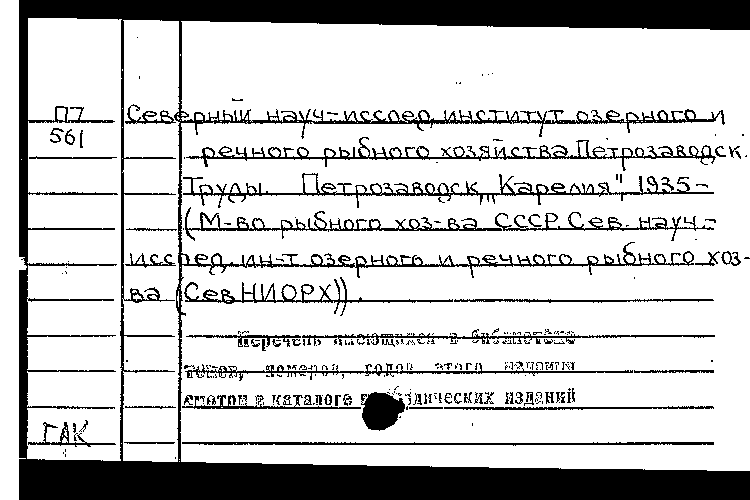 П7
561
Северный науч-исслед. институт озерного и
речного рыбного хозяйства. Петрозаводск.
Труды. Петрозаводск, "Карелия", 1935-
(М-во рыбного хоз-ва СССР. Сев. науч.-
исслед. ин-т озерного и речного рыбного хоз-
ва (СевНИОРХ)).
Перечень имеющихся в библиотеке
томов, номеров, годов этого издания
смотри в каталоге периодических изданий
ГАК